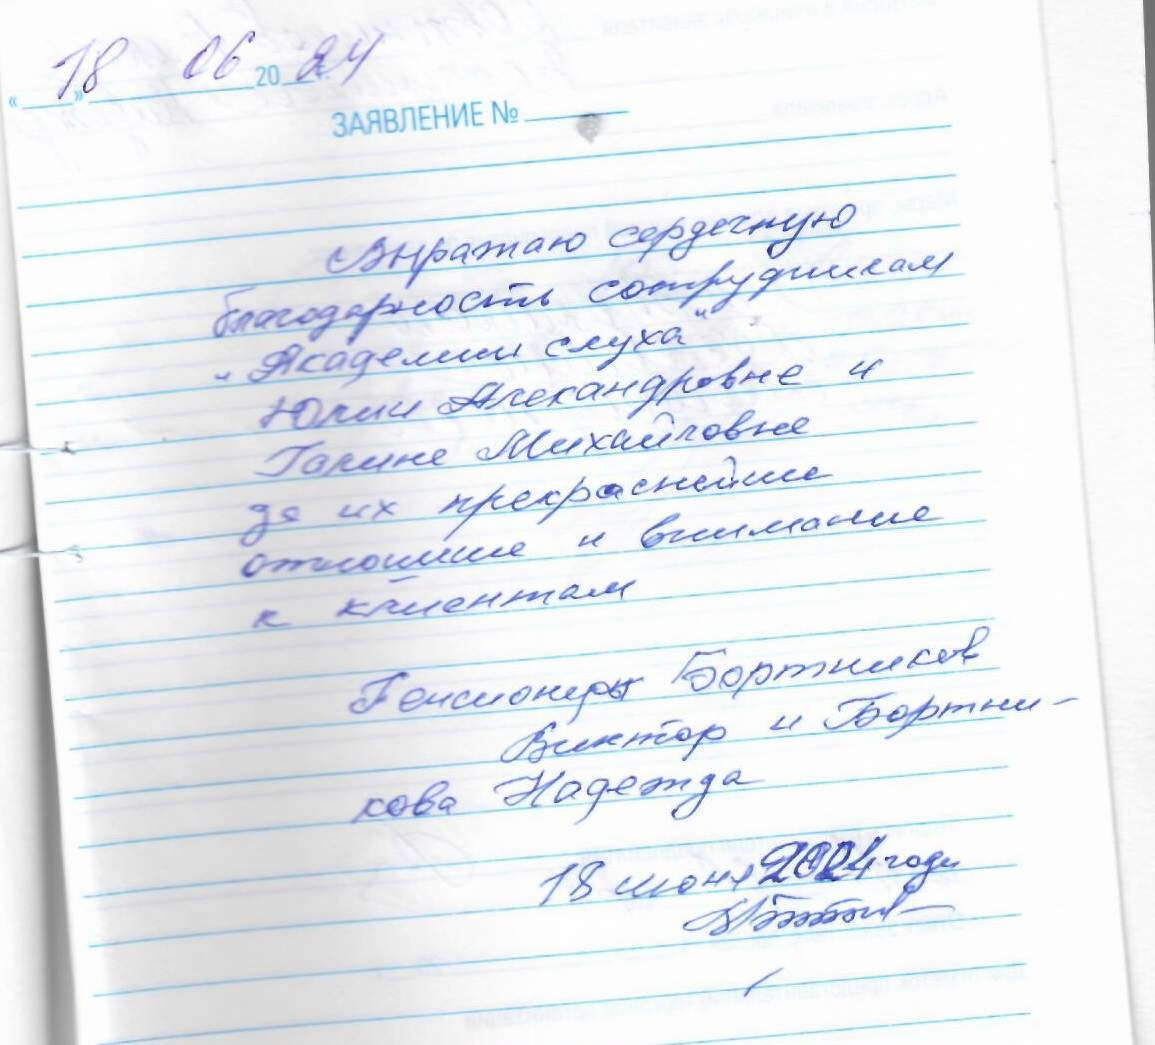 «18» 06 2024 г.
ЗАЯВЛЕНИЕ №
Выражаю сердечную
благодарность сотрудникам
"Академии слуха"
Юлии Александровне и
Галине Михайловне
за их прекраснейшие
отношние и внимание
к клиентам
Пенсионеры Бортников
Виктор и Бортни-
кова Надежда
18 июня 2024 года